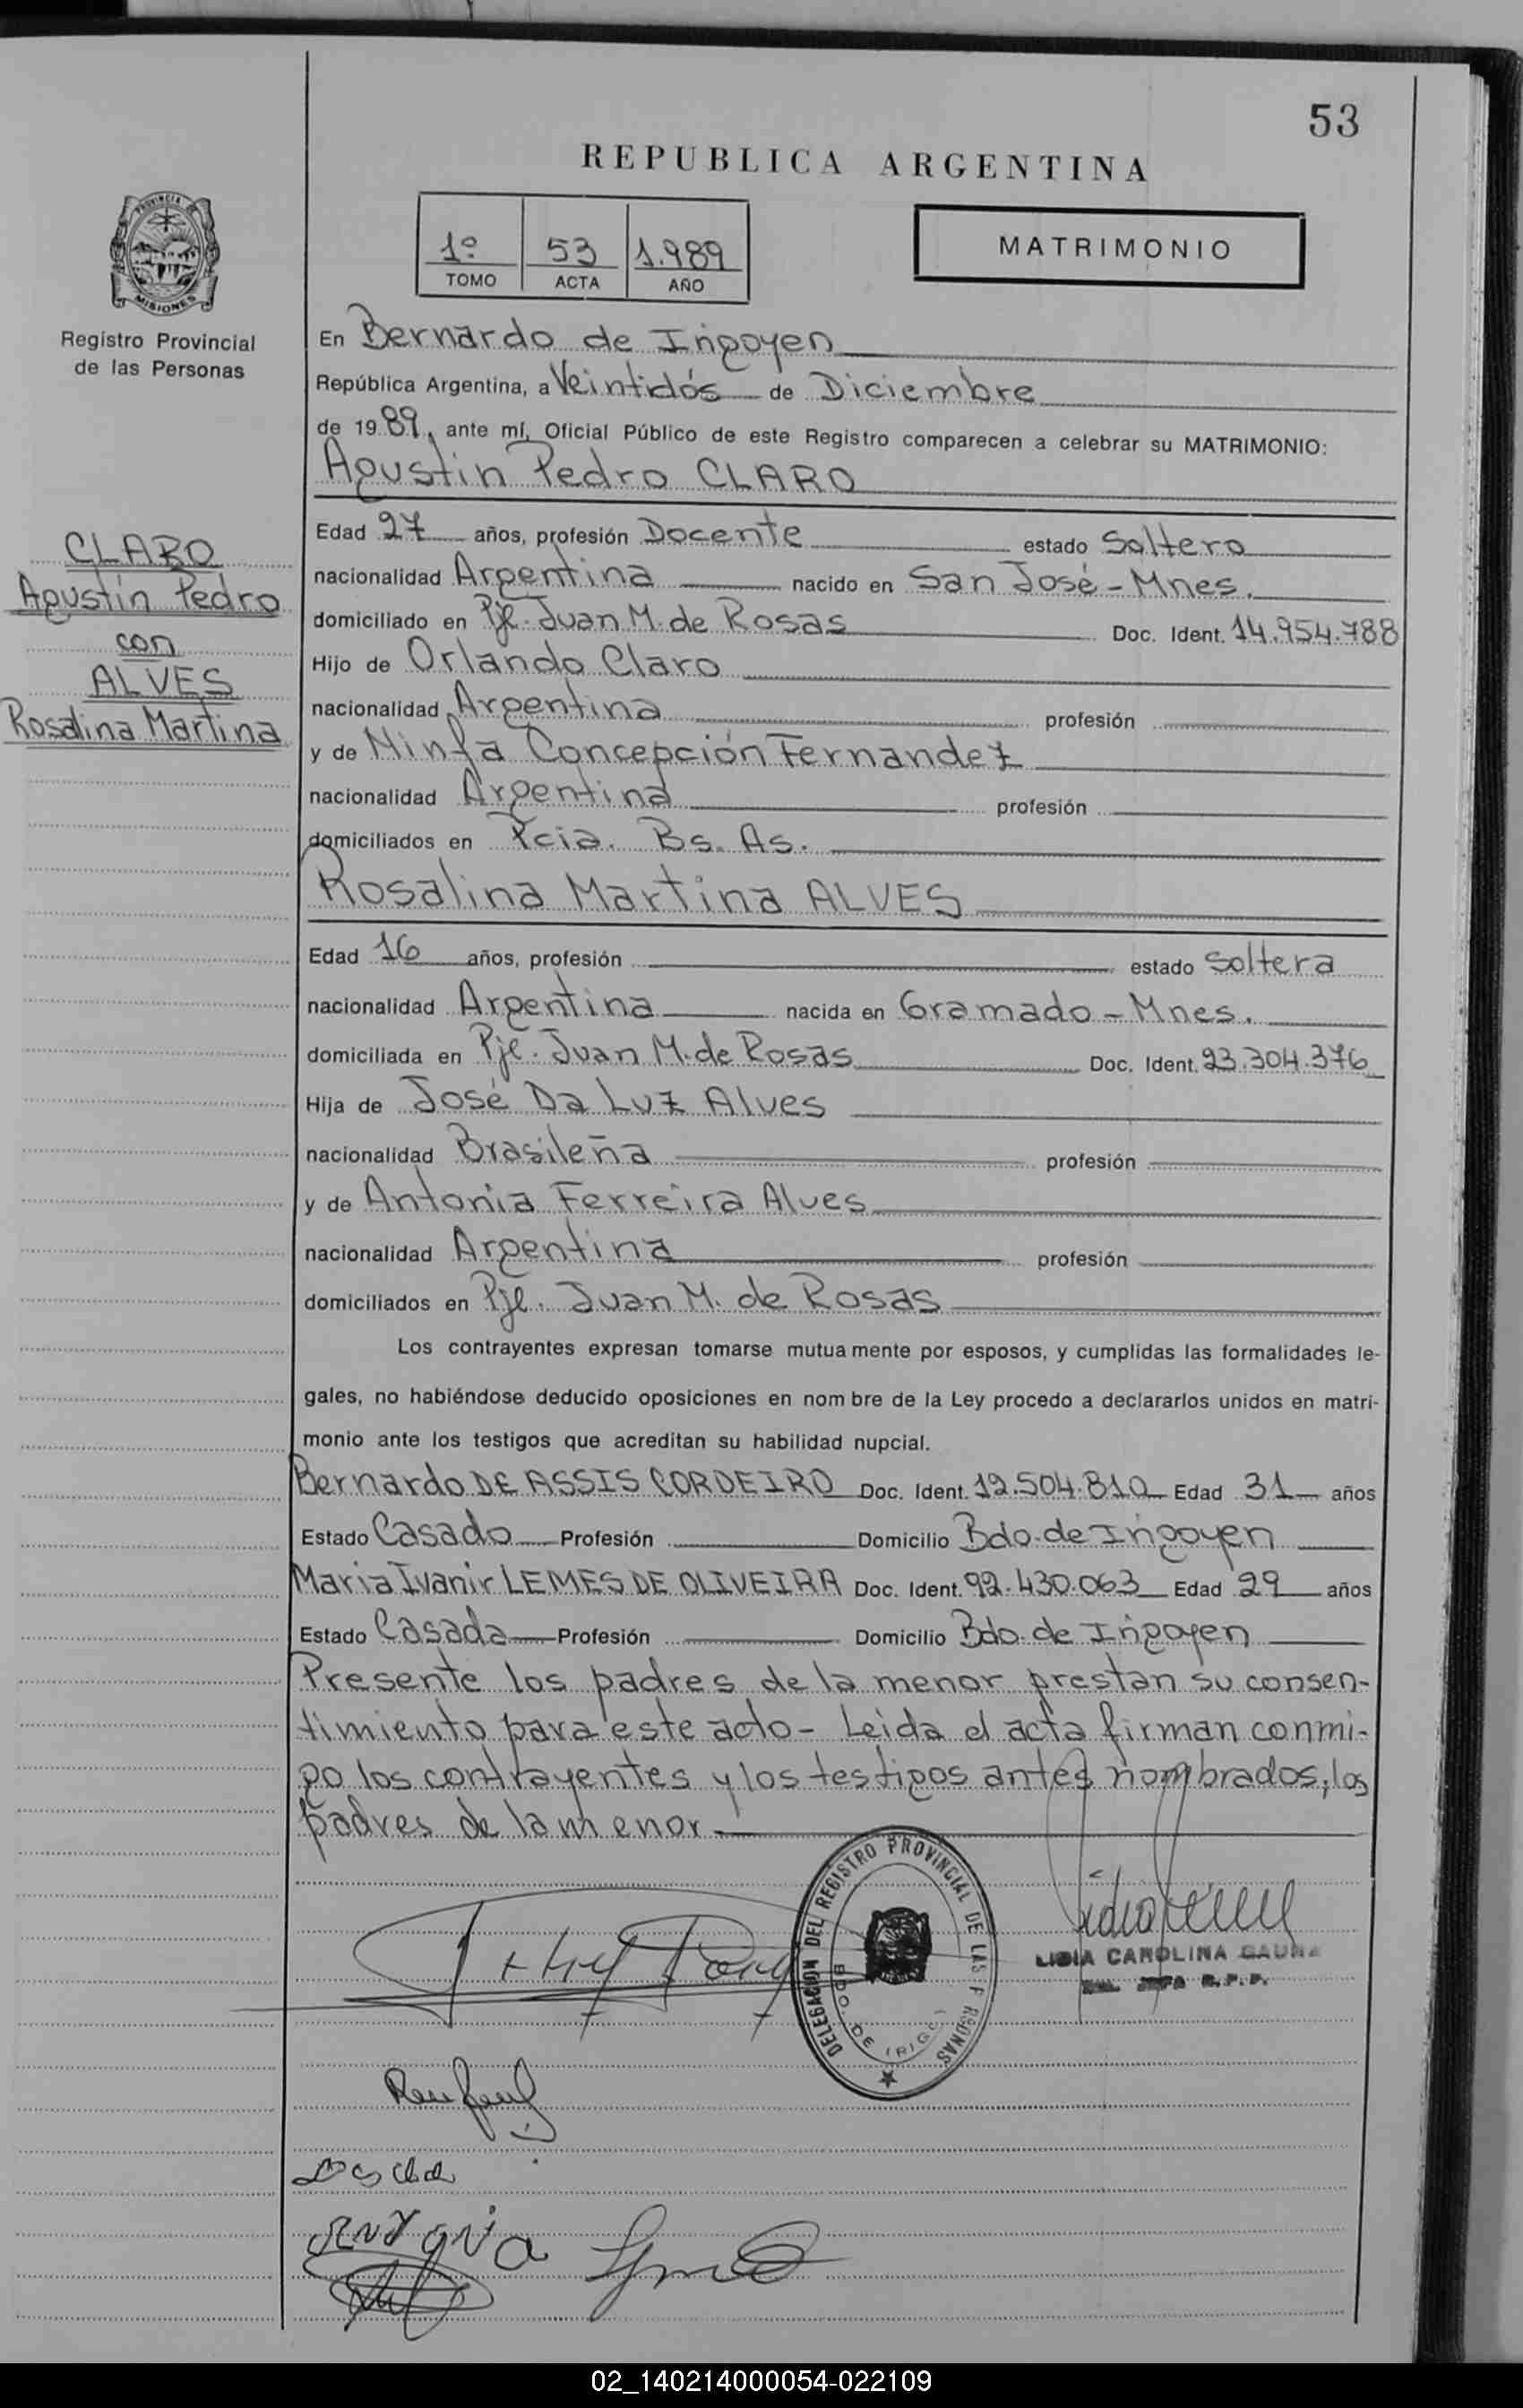 53
REPUBLICA ARGENTINA
PROVINCIA DE
MISIONES
Registro Provincial
de las Personas
1º 53 1.989
TOMO ACTA AÑO
MATRIMONIO
En Bernardo de Irigoyen
República Argentina, a Veintidós de Diciembre
de 1989, ante mí, Oficial Público de este Registro comparecen a celebrar su MATRIMONIO:
Agustin Pedro CLARO
CLARO
Agustín Pedro
con
ALVES
Rosalina Martina
Edad 27 años, profesión Docente estado Soltero
nacionalidad Argentina nacido en San José - Mnes.
domiciliado en Pje. Juan M. de Rosas Doc. Ident. 14.954.788
Hijo de Orlando Claro
nacionalidad Argentina profesión
y de Ninfa Concepción Fernandez
nacionalidad Argentina profesión
domiciliados en Pcia. Bs. As.
Rosalina Martina ALVES
Edad 16 años, profesión estado Soltera
nacionalidad Argentina nacida en Gramado - Mnes.
domiciliada en Pje. Juan M. de Rosas Doc. Ident. 23.304.376
Hija de José Da Luz Alves
nacionalidad Brasileña profesión
y de Antonia Ferreira Alves
nacionalidad Argentina profesión
domiciliados en Pje. Juan M. de Rosas
Los contrayentes expresan tomarse mutuamente por esposos, y cumplidas las formalidades le-
gales, no habiéndose deducido oposiciones en nombre de la Ley procedo a declararlos unidos en matri-
monio ante los testigos que acreditan su habilidad nupcial.
Bernardo DE ASSIS CORDEIRO Doc. Ident. 12.504.810 Edad 31 años
Estado Casado Profesión Domicilio Bdo. de Irigoyen
Maria Ivanir LEMES DE OLIVEIRA Doc. Ident. 92.430.063 Edad 29 años
Estado Casada Profesión Domicilio Bdo. de Irigoyen
Presente los padres de la menor prestan su consen-
timiento para este acto - Leida el acta firman conmi-
go los contrayentes y los testigos antes nombrados; los
padres de la menor
DELEGACION DEL REGISTRO PROVINCIAL DE LAS PERSONAS
BDO. DE IRIGOY
LIDIA CAROLINA GAUNA
JEFA R.P.P.
Antonia
02_140214000054-022109